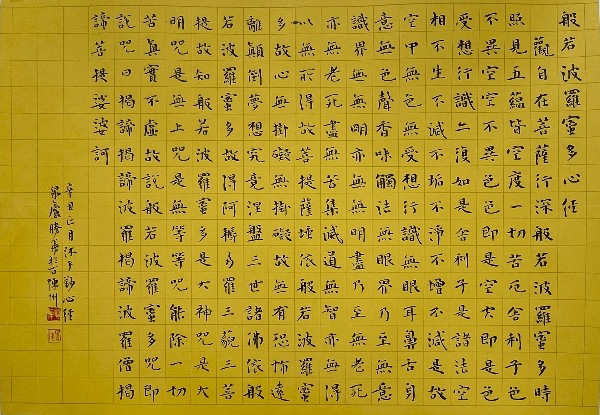 般若波羅蜜多心經
觀自在菩薩行深般若波羅蜜多時
照見五蘊皆空度一切苦厄舍利子色
不異空空不異色色即是空空即是色
受想行識亦復如是舍利子是諸法空
相不生不滅不垢不淨不增不減是故
空中無色無受想行識無眼耳鼻舌身
意無色聲香味觸法無眼界乃至無意
識界無無明亦無無明盡乃至無老死
亦無老死盡無苦集滅道無智亦無得
以無所得故菩提薩埵依般若波羅蜜
多故心無掛礙無掛礙故無有恐怖遠
離顛倒夢想究竟涅盤三世諸佛依般
若波羅蜜多故得阿耨多羅三藐三菩
提故知般若波羅蜜多是大神咒是大
明咒是無上咒是無等等咒能除一切
苦真實不虛故說般若波羅蜜多咒即
說咒曰揭諦揭諦波羅揭諦波羅僧揭
諦菩提娑婆訶
辛丑正月沐手鈔心經